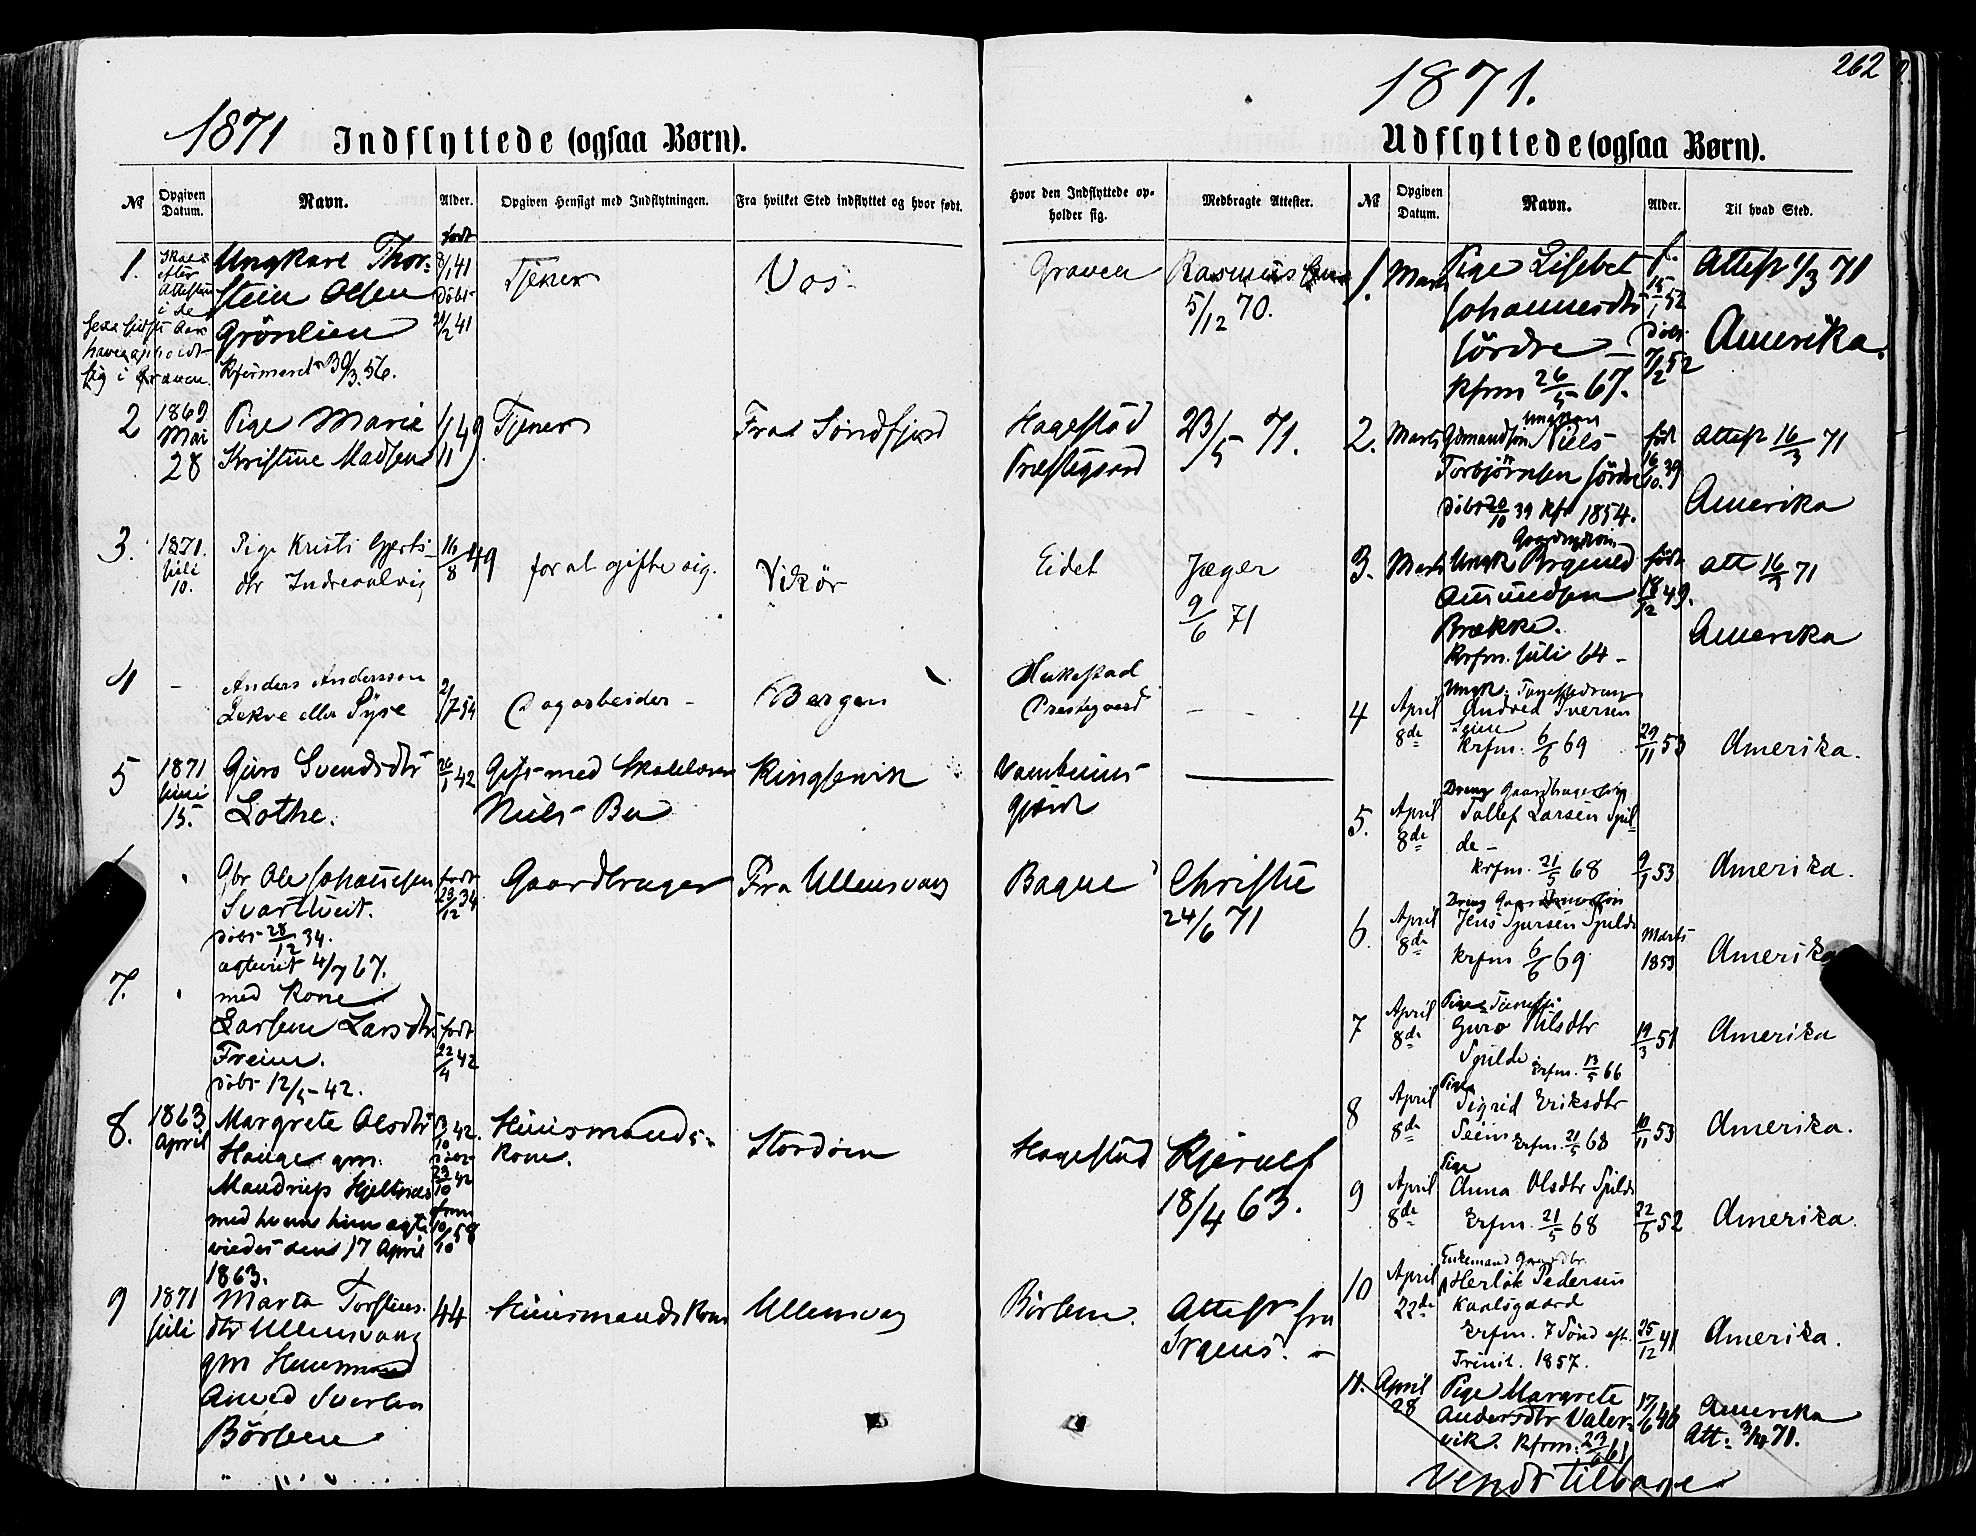 262
1871 Indflyttede (ogsaa Børn).
№ Opgiven Datum. Navn. Alder. Opgiven Hensigt med Indflytningen. Fra hvilket Sted indflyttet og hvor født. Hvor den Indflyttede opholder sig. Medbragte Attester.
1. Skal efter Attesten i de
Ungkarl Thor-
stein Olsen
Grönlien
født 8/1 41 döbt 41
Tjener Vos
Graven Rasmus
5/12 70.
sig i Graven
2 1869 Mai 28 Pige Marie
Kristine Madsen
1/11 49 Tjener Fra Söndfjord
Hagestad
Præstegaard
23/5 71.
3. 1871. Juli 10. Pige Kristi Gjerts-
dtr Indreaalvig
16/8 49 for at gifte sig. Vikör
Eidet Jæger
9/6 71
4 - Anders Andersson
Lekve eller Syse
2/7 54 Dagarbeider - Bergen
Hakestad
Prestegaard - -
5 1871 Juni 15. Guro Svendsdtr
Lothe.
42 Gift med Skolelærer
Niels Bu
Kinservik
Gbr Ole Johannesen
Svartveit.
döbt 28/12 34.
agtviet 4/7 67.
født 23/12 34
Gaardbruger Fra Ullensvang
Bague Christie
24/6 71
7. med Kone
Larsine Larsdtr
Freim.
döbt 12/5 - 42.
født 22/4 42
8. 1863 April Margrete Olsdtr
Hauge gm.
Mandrup Hjeltnes
med hvem hun ægte-
viedes den 17 April
1863.
42. döbt 23/10 42 58
Huusmands-
kone.
Stordöen
Hagestad Kjerulf
18/4 63.
9 1871 Juli Marta Torsteins-
dtr Ullensvang
gm Huusmand
Amund Sverken
Börsem
44 Huusmandskone Ullensvang
Börsem. Attest fra
Irgens. -
1871.
Udflyttede (ogsaa Børn).
№ Opgiven Datum. Navn. Alder. Til hvad Sted.
1. Marts Pige Lisebet
Johannesdtr
Sördre -
Kfrm 26/5 67.
f. 15/1 52 döbt 7/2 52
Attest 1/3 71
Amerika.
2. Marts Ungkarl
Niels
Torbjörnsen Sördre
döbt 20/10 39 Kfr 1854.
född 16/10 39
Attest 16/3 71
Amerika
3. Marts Ungk Brynild
Amundsen
Brække.
Krfm. Juli 64 -
född 18/12 49.
att 16/3 71
Amerika
4 April 8de Ungk.
Andved Iversen
Krfm. 6/6 69
29/11 53 Amerika.
5. April 8de Dreng
Tollef Larsen Spil-
de -
Krfm. 21/5 68
9/1 53 Amerika.
6. April 8de Dreng
Jens Sjursen Spilde
Krfm 6/6 69
Marts 1853 Amerika
7 April 8de Pige
Guro Nilsdtr
Spilde Krfm. 13/5 66
19/3 51 Amerika
8 April 8de Pige
Sigrid Eriksdtr
Seim Krfm. 21/5 68
10/11 53 Amerika.
9 April 8de Pige
Anna Olsdtr Spilde
Krfm. 21/5 68
22/6 52 Amerika.
10 April 22de Enkemand Gaardbr.
Herlök Pedersen
Karlsgaard
Krfm. 7 Sönd eft.
Trinit. 1857.
25/12 41 Amerika.
11. April 28 Pige Margrete
Andersdtr Valer-
vik. Kfrm: 23/6 61
17/6 46 Amerika
Att: 3/4 71.
Vendt tilbage